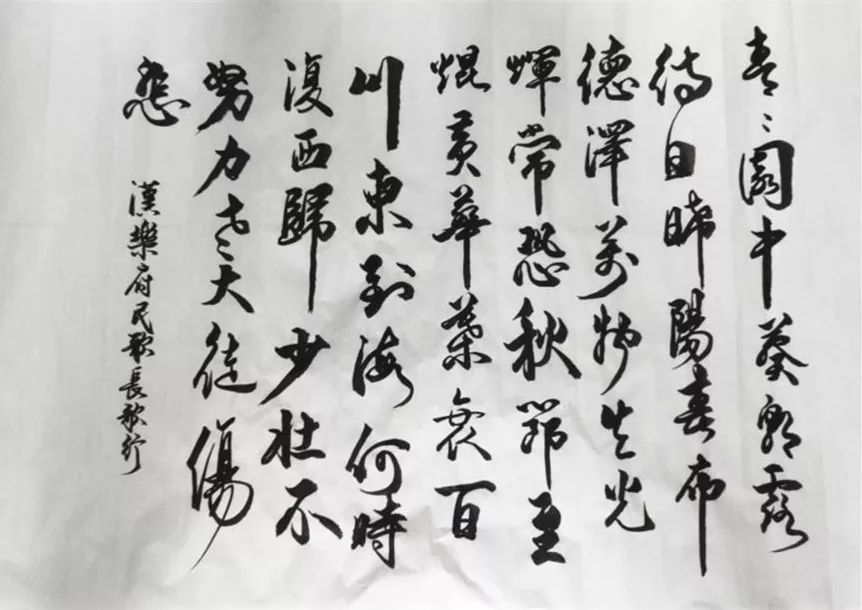 青〻園中葵朝露
待日晞陽春布
德澤萬物生光
輝常恐秋節至
焜黃華葉衰百
川東到海何時
復西歸少壯不
努力老大徒傷
悲
漢樂府民歌長歌行